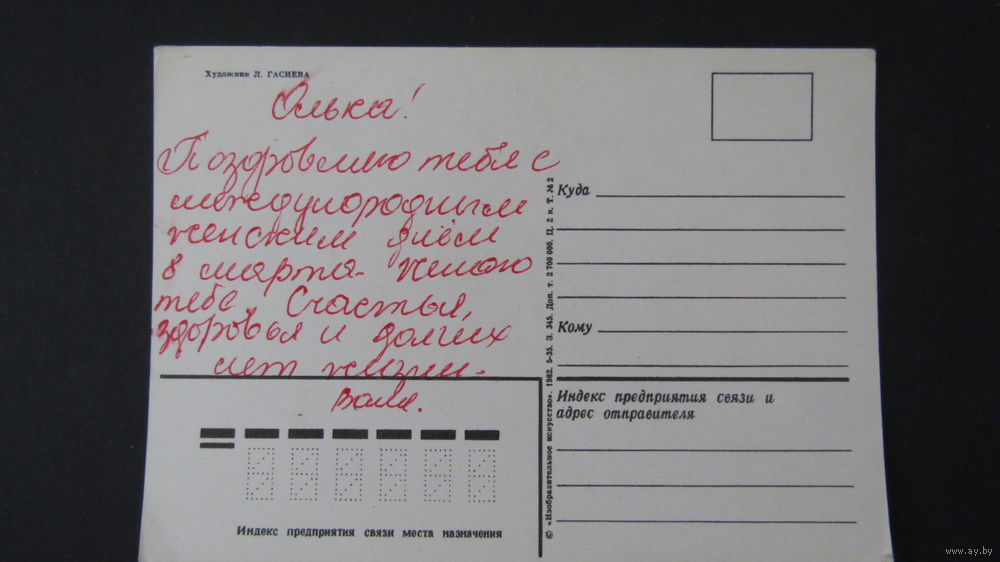 Художник Л. ГАСИЕВА
Олька!
Поздоровляю тебя с
международным
женским днём
8 марта. желаю
тебе. Счастья,
здоровья и долгих
лет жизни.
Валя.
Индекс предприятия связи места назначения
© «Изобразительное искусство». 1982. 5-35. З. 345. Доп. т. 2 700 000. Ц. 2 к. Т. № 2
Куда
Кому
Индекс предприятия связи и
адрес отправителя
www.ay.by